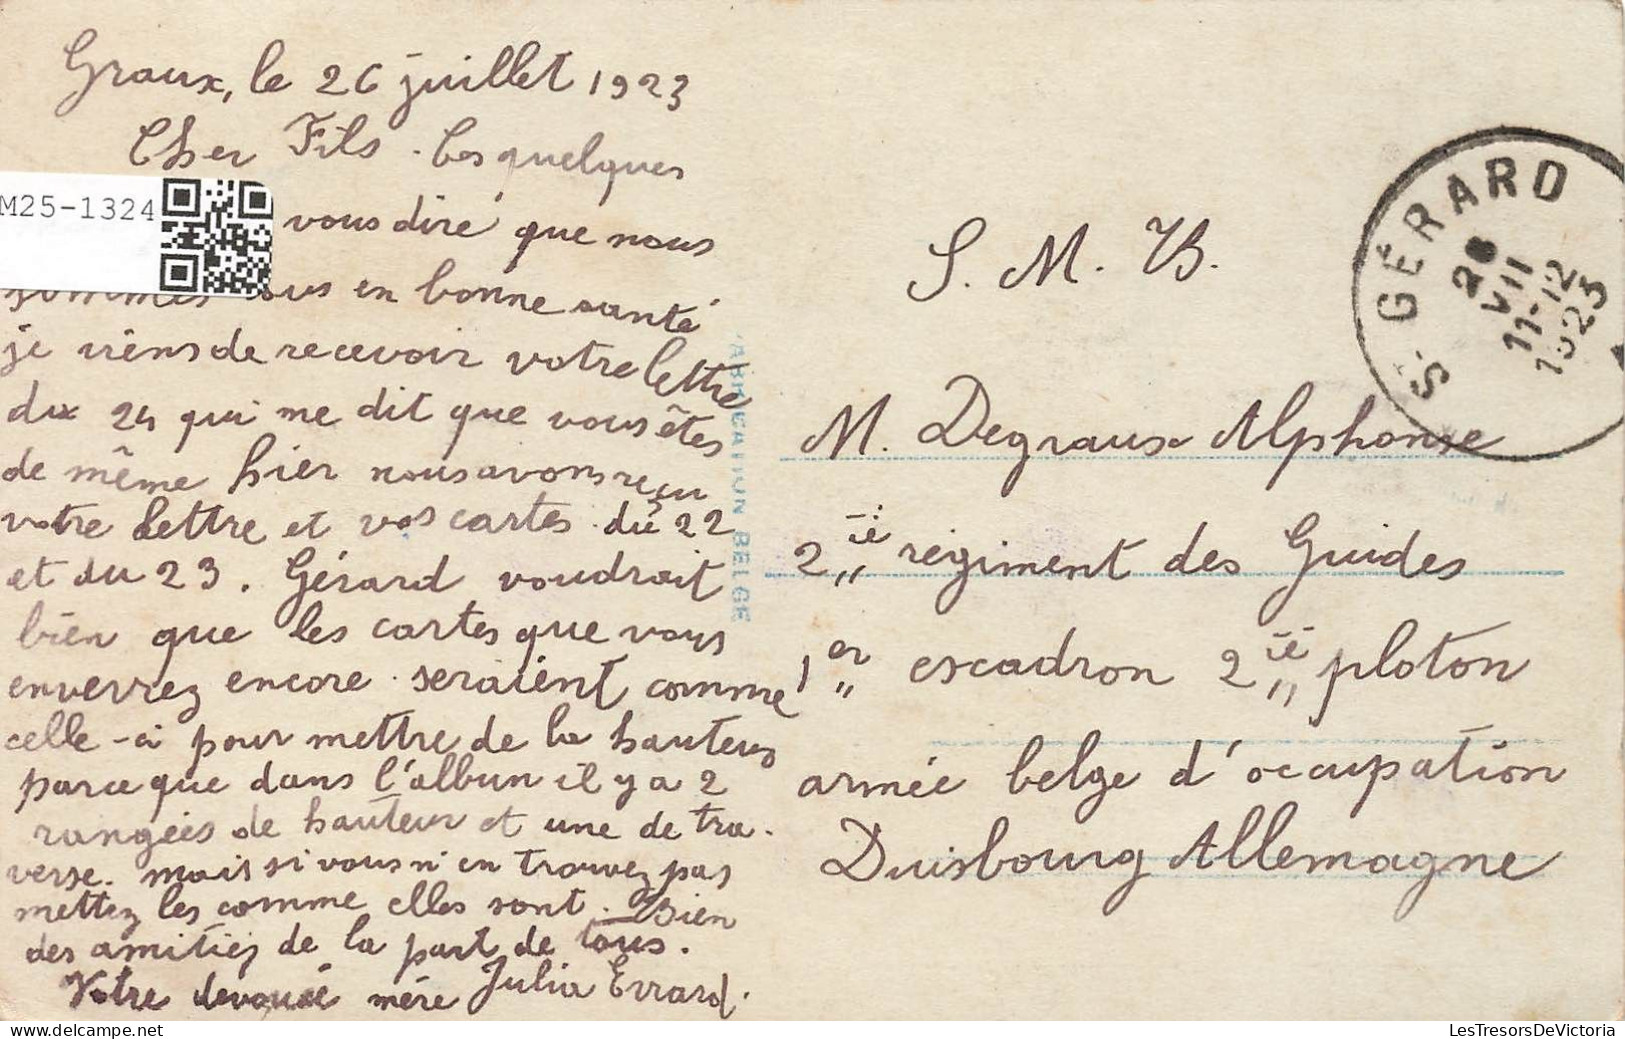 Graux, le 26 juillet 1923
Cher Fils. Ces quelques
vous dire que nous
sommes tous en bonne santé
je viens de recevoir votre lettre
du 24 qui me dit que vous êtes
de même hier nous avons reçu
votre lettre et vos cartes du 22
et du 23. Gérard voudrait
bien que les cartes que vous
enverrez encore seraient comme
celle-ci pour mettre de la hauteur
parce que dans l'albun il y a 2
rangées de hauteur et une de tra-
verse. mais si vous n'en trouvez pas
mettez les comme elles sont. Bien
des amitiés de la part de tous.
Votre dévouée mère Julia Errard.
M25-1324
FABRICATION BELGE
S. M. B.
M. Degraux Alphonse
2ie régiment des Guides
1er escadron 2ie ploton
armée belge d'occupation
Duisbourg Allemagne
St GÉRARD
28
VII
11-12
1923
LesTresorsDeVictoria